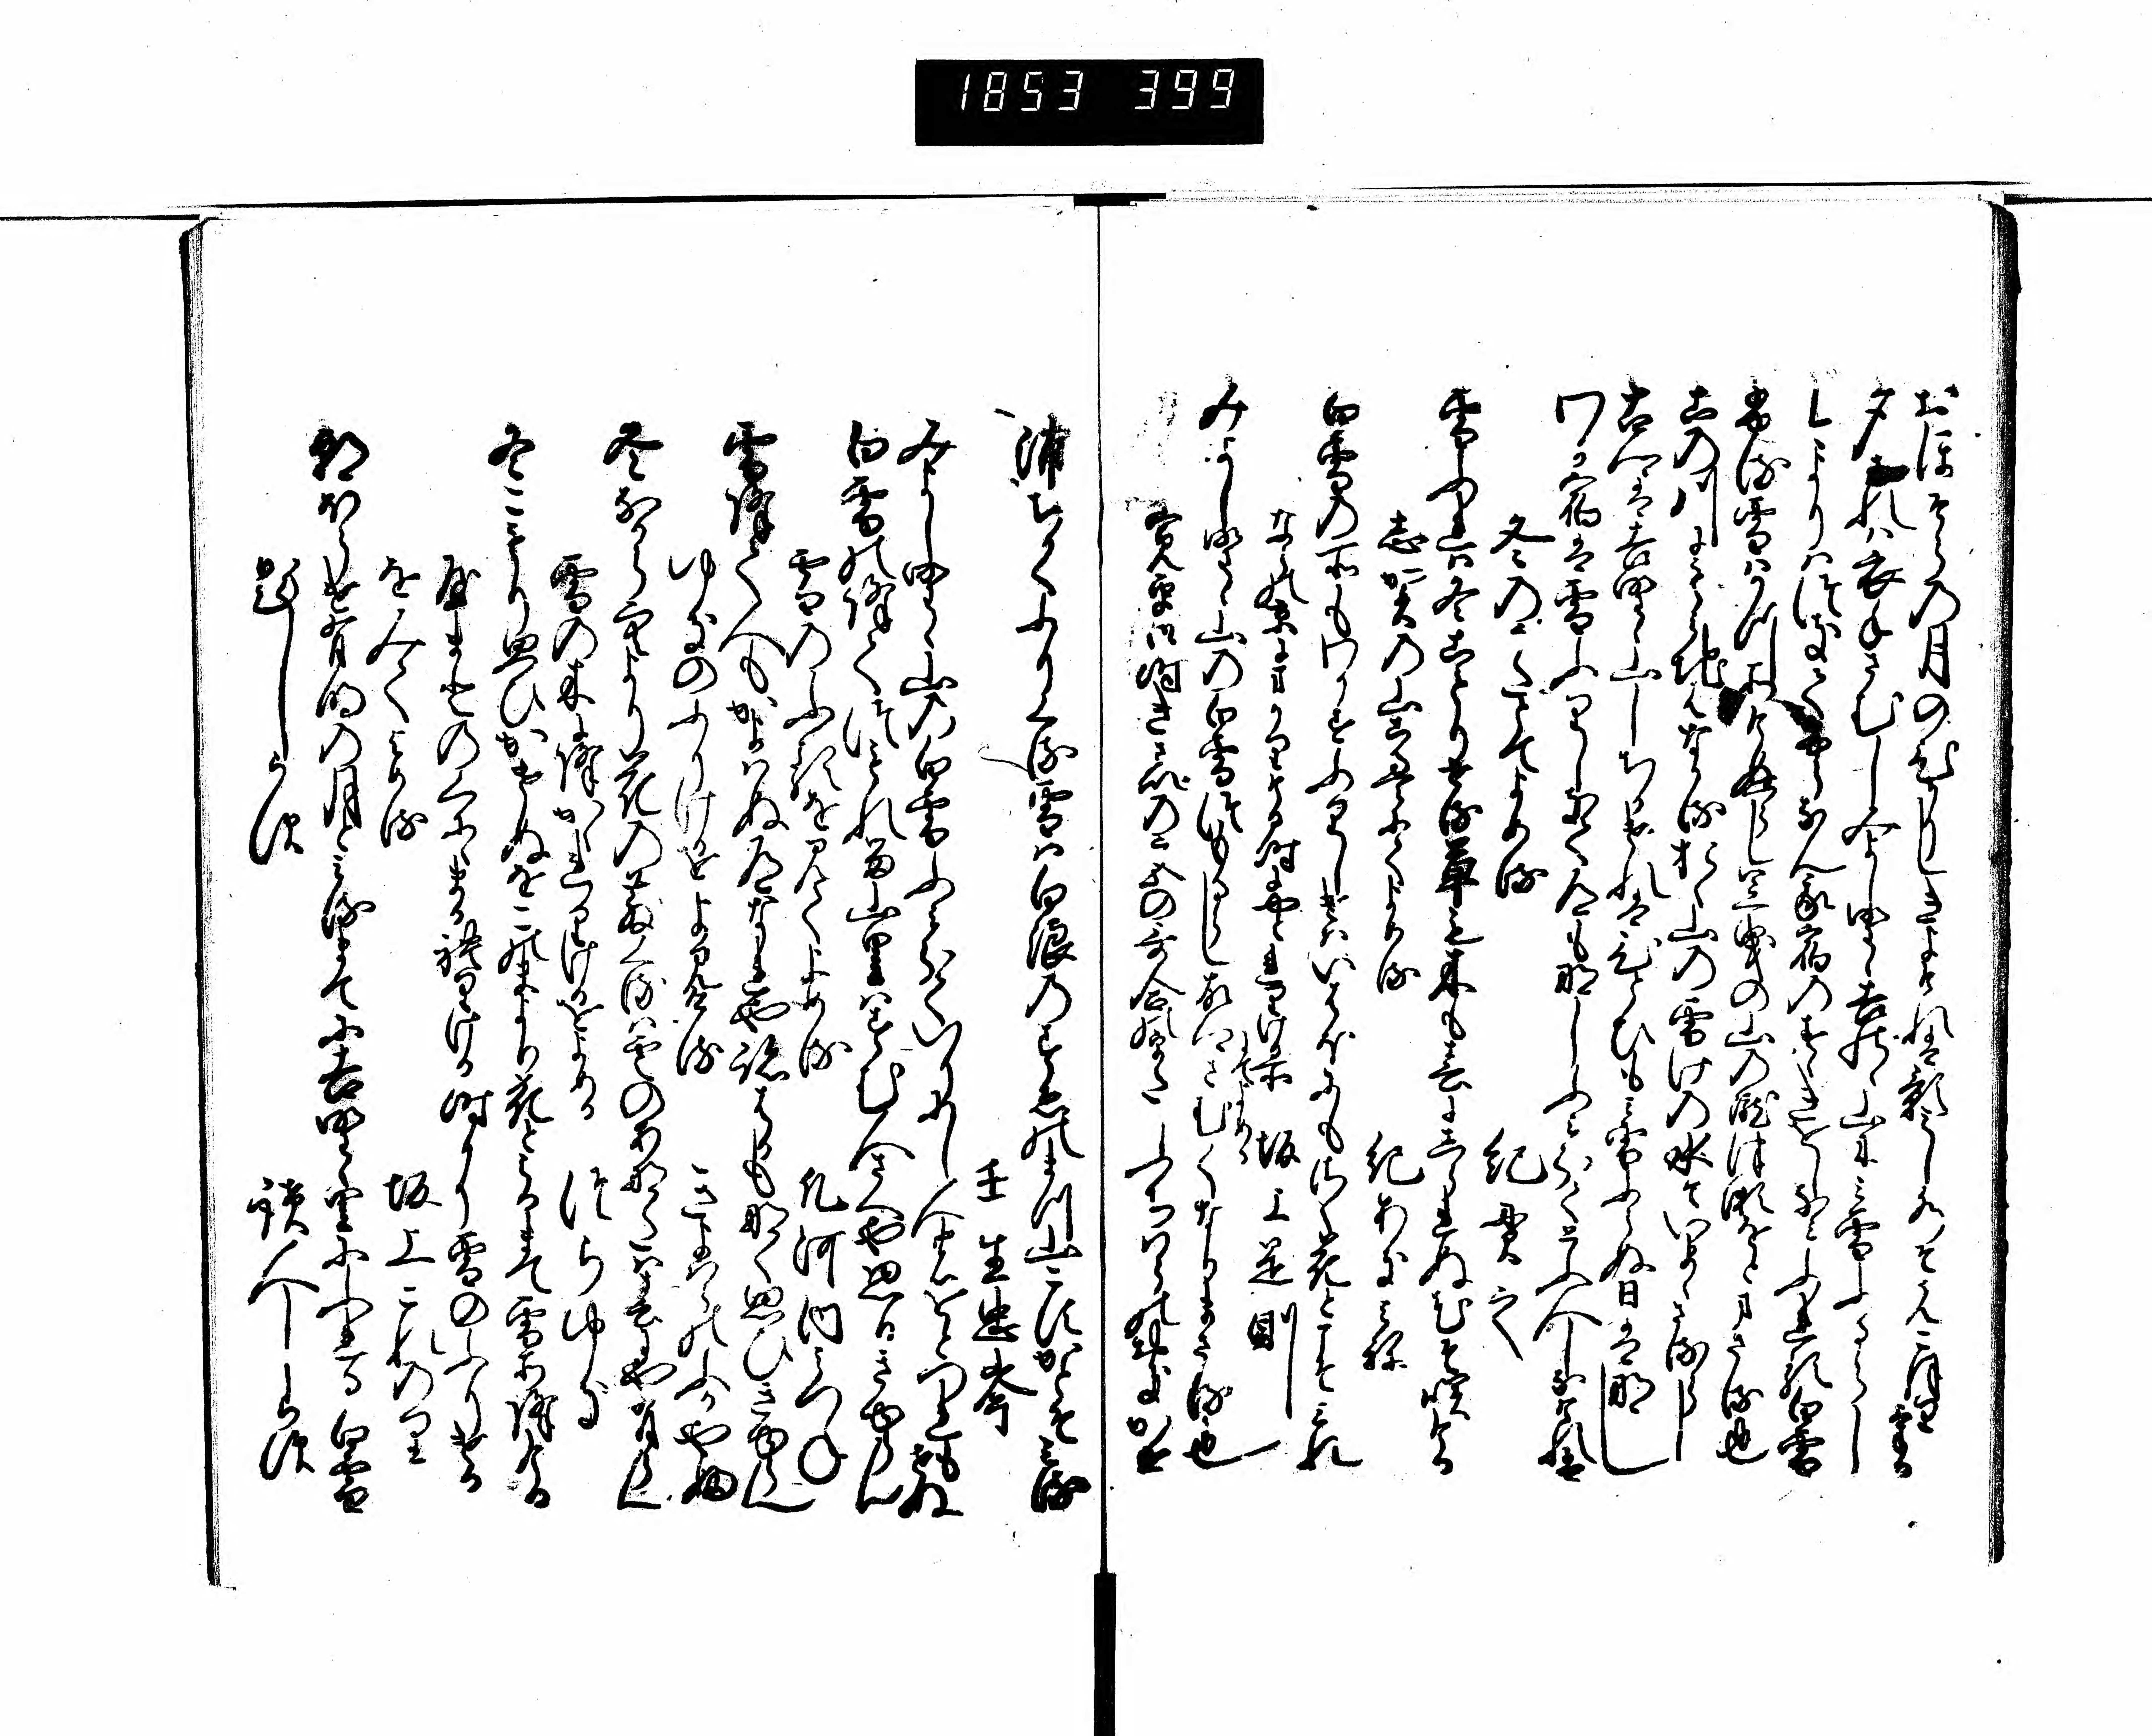 おほそらの月のひかりしきよけれは影みし水そまつこほりける
夕されは衣手さむしみよしのゝ吉野の山にみ雪ふるらし
今よりはつきてふらなん我宿のすゝきをしなみふれる白雪
ふる雪はかつそけぬらし足曳の山の瀧津瀬をとまさる也
この川にもみち葉なかるおく山の雪けの水そいまゝさるらし
古郷は吉野の山しちかけれは一日もみ雪ふらぬ日は那し
わか宿は雪ふりしきて道も那しふみわけてとふ人しなけれは
冬のうたとてよめる 紀貫之
雪ふれは冬こもりせる草も木も春にしられぬ花そ咲ける
志賀の山こえにてよめる 紀あきみね
白雪の所もわかすふりしけはいはほにもさく花とこそみれ
ならの京にまかれりける時にやとれりける所にてよめる 坂上是則
みよしのゝ山の白雪つもるらし故さとさむくなりまさる也
寛平御時きさいの宮の哥合哥 ふちはらのおきかせ
浦ちかくふりくる雪は白浪のすゑの松山こすかとそみる
壬生忠岑
みよしのゝ山の白雪ふみわけていりにし人のをとつれもせぬ
白雪の降てつもれる山里はすむ人さへや思ひきゆらん
雪のふれるを見てよめる 凡河内みつね
雪降て人もかよはぬ道なれや跡はかも那く思ひきゆらん
ゆきのふりけるをよみける きよはらのふかやふ
冬なから空より花のちりくるは雲のあなたは春にや有らん
雪の木に降かゝれりけるをよめる つらゆき
冬こもり思ひかけぬをこのまより花とみるまて雪そ降ける
やまとの国にまかれりける時にゆき雪のふりける
をみてよめる 坂上これのり
朝ほらけ有明の月とみるまてに吉野の里にふれる白雪
題しらす 読人しらす
1853 399